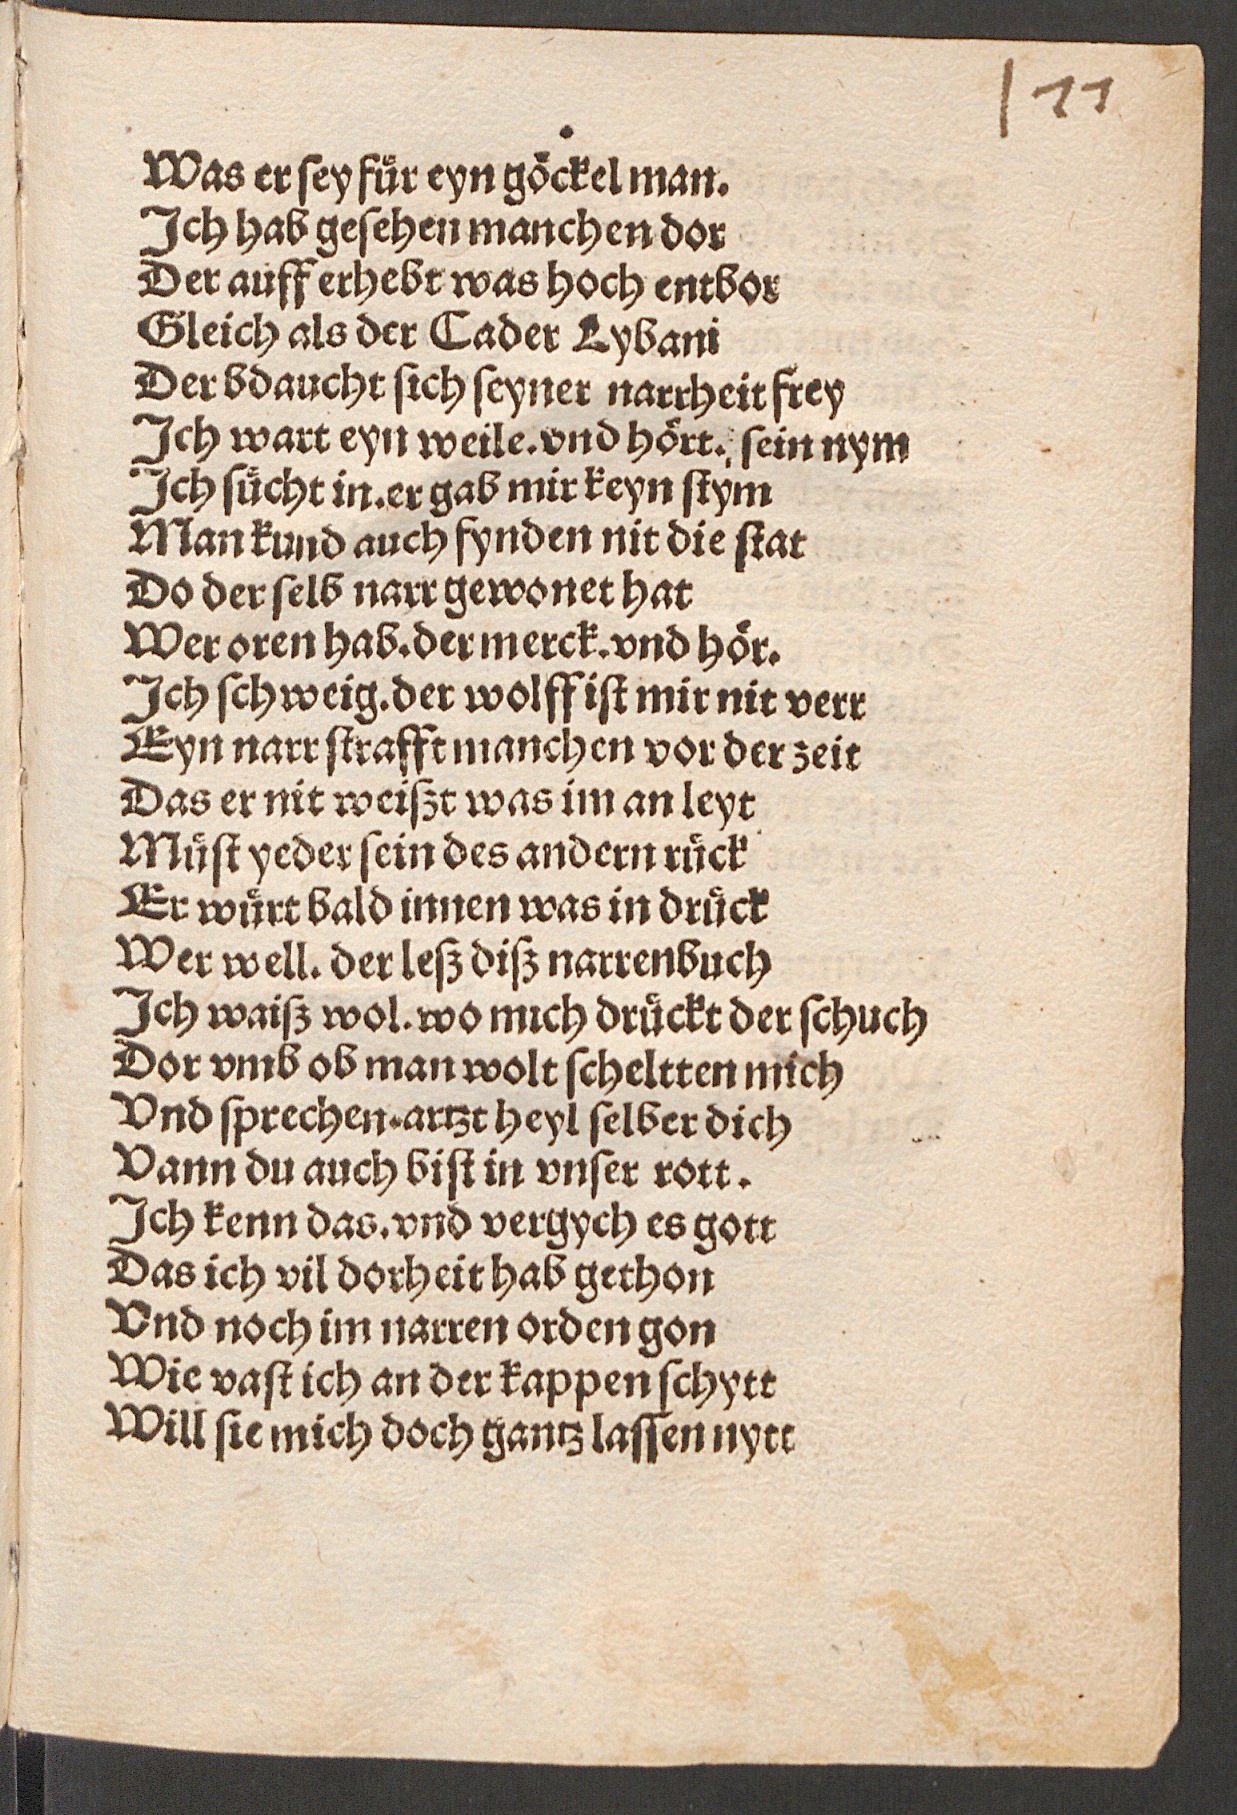 11
Was er sey fuͤr eyn goͤckel man.
Ich hab gesehen manchen dor
Der auff erhebt was hoch entbor
Gleich als der Cader Lybani
Der bdaucht sich seyner narrheit frey
Ich wart eyn weile. vnd hoͤrt. sein nym
Ich suͤcht in. er gab mir keyn stym
Man kund auch fynden nit die stat
Do der selb narr gewonet hat
Wer oren hab. der merck. vnd hoͤr.
Ich schweig. der wolff ist mir nit verr
Eyn narr strafft manchen vor der zeit
Das er nit weiszt was im an leyt
Muͤst yeder sein des andern ruͤck
Er wuͤrt bald innen was in druͤck
Wer well. der lesz disz narrenbuch
Ich waisz wol. wo mich druͤckt der schuch
Dor vmb ob man wolt scheltten mich
Vnd sprechen. artzt heyl selber dich
Vann du auch bist in vnser rott.
Ich kenn das. vnd vergych es gott
Das ich vil dorheit hab gethon
Vnd noch im narren orden gon
Wie vast ich an der kappen schytt
Will sie mich doch gantz lassen nytt